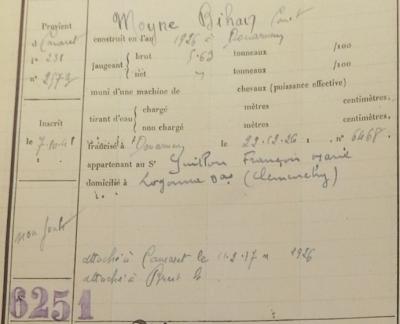 Moyne Bihan Canot
Provient
construit en l'an 1926 à Douarnenez
d Camaret
f° 231
n° 2573
jaugeant brut 5.63 tonneaux /100
net " tonneaux /100
muni d'une machine de chevaux (puissance effective)
tirant d'eau chargé mètres centimètres,
non chargé mètres centimètres,
Inscrit
le 7.10.41
francisé à Douarnenez le 22.12.26 n° 6468.
appartenant au Sr Guillou François Marie
domicilié à Logonna Das (Clemenchy)
non ponté
attaché à Camaret le 11.2.37 n 1926
attaché à Brest le
6251